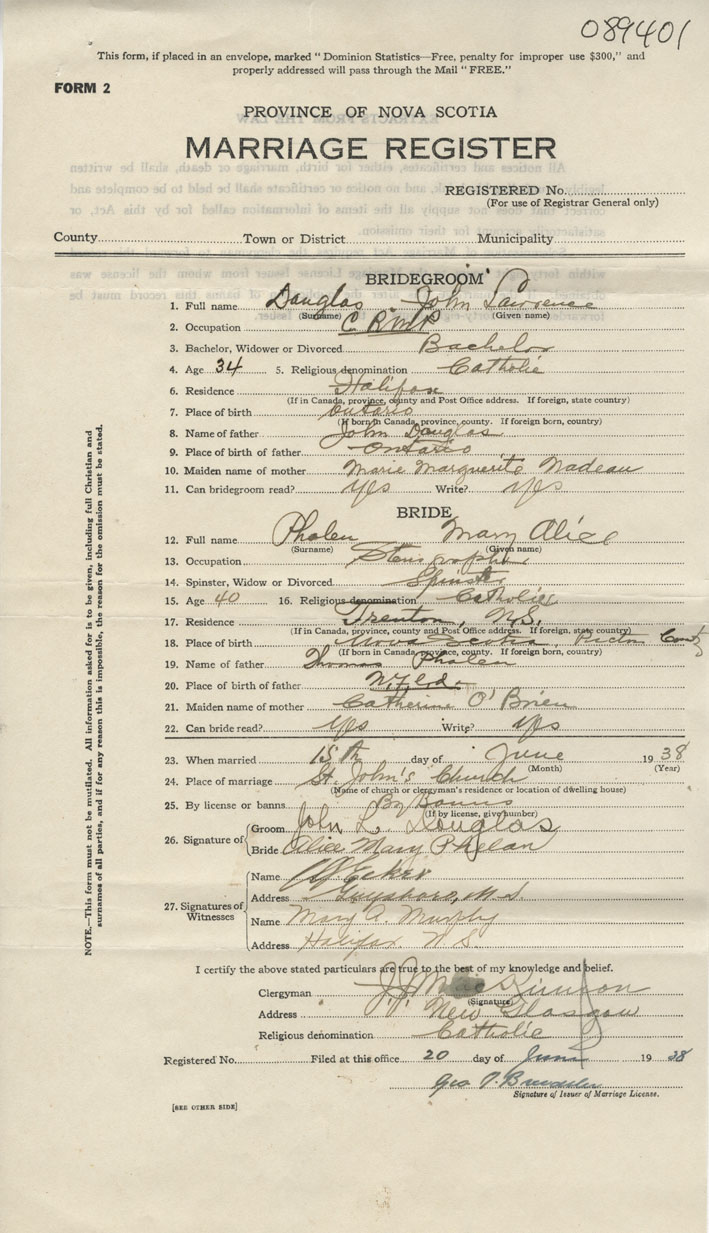 089401
This form, if placed in an envelope, marked "Dominion Statistics—Free, penalty for improper use $300," and
properly addressed will pass through the Mail "FREE."
FORM 2
PROVINCE OF NOVA SCOTIA
MARRIAGE REGISTER
REGISTERED No.
(For use of Registrar General only)
County Town or District Municipality
BRIDEGROOM
1. Full name Douglas John Lawrence
(Surname) (Given name)
2. Occupation C. R.M.P.
3. Bachelor, Widower or Divorced Bachelor
4. Age 34 5. Religious denomination Catholic
6. Residence Halifax
(If in Canada, province, county and Post Office address. If foreign, state country)
7. Place of birth Ontario
(If born in Canada, province, county. If foreign born, country)
8. Name of father John Douglas
9. Place of birth of father Ontario
10. Maiden name of mother Marie Marguerite Nadeau
11. Can bridegroom read? yes Write? yes
BRIDE
12. Full name Phalen Mary Alice
(Surname) (Given name)
13. Occupation Stenographer
14. Spinster, Widow or Divorced Spinster
15. Age 40 16. Religious denomination Catholic
17. Residence Trenton, N.S.
(If in Canada, province, county and Post Office address. If foreign, state country)
18. Place of birth Nova Scotia, Pictou County
(If born in Canada, province, county. If foreign born, country)
19. Name of father Thomas Phalen
20. Place of birth of father Nfld.
21. Maiden name of mother Catherine O'Brien
22. Can bride read? yes Write? yes
23. When married 15th day of June 1938
(Month) (Year)
24. Place of marriage St. John's Church
(Name of church or clergyman's residence or location of dwelling house)
25. By license or banns By Banns
(If by license, give number)
26. Signature of
Groom John L. Douglas
Bride Alice Mary Phelan
27. Signatures of Witnesses
Name
Address Guysboro, N.S.
Name Mary A. Murphy
Address Halifax N.S.
I certify the above stated particulars are true to the best of my knowledge and belief.
Clergyman J.J. MacKinnon
(Signature)
Address New Glasgow
Religious denomination Catholic
Registered No. Filed at this office 20 day of June 1938
Geo
Signature of Issuer of Marriage License.
[SEE OTHER SIDE]
NOTE.—This form must not be mutilated. All information asked for is to be given, including full Christian and
surnames of all parties, and if for any reason this is impossible, the reason for the omission must be stated.